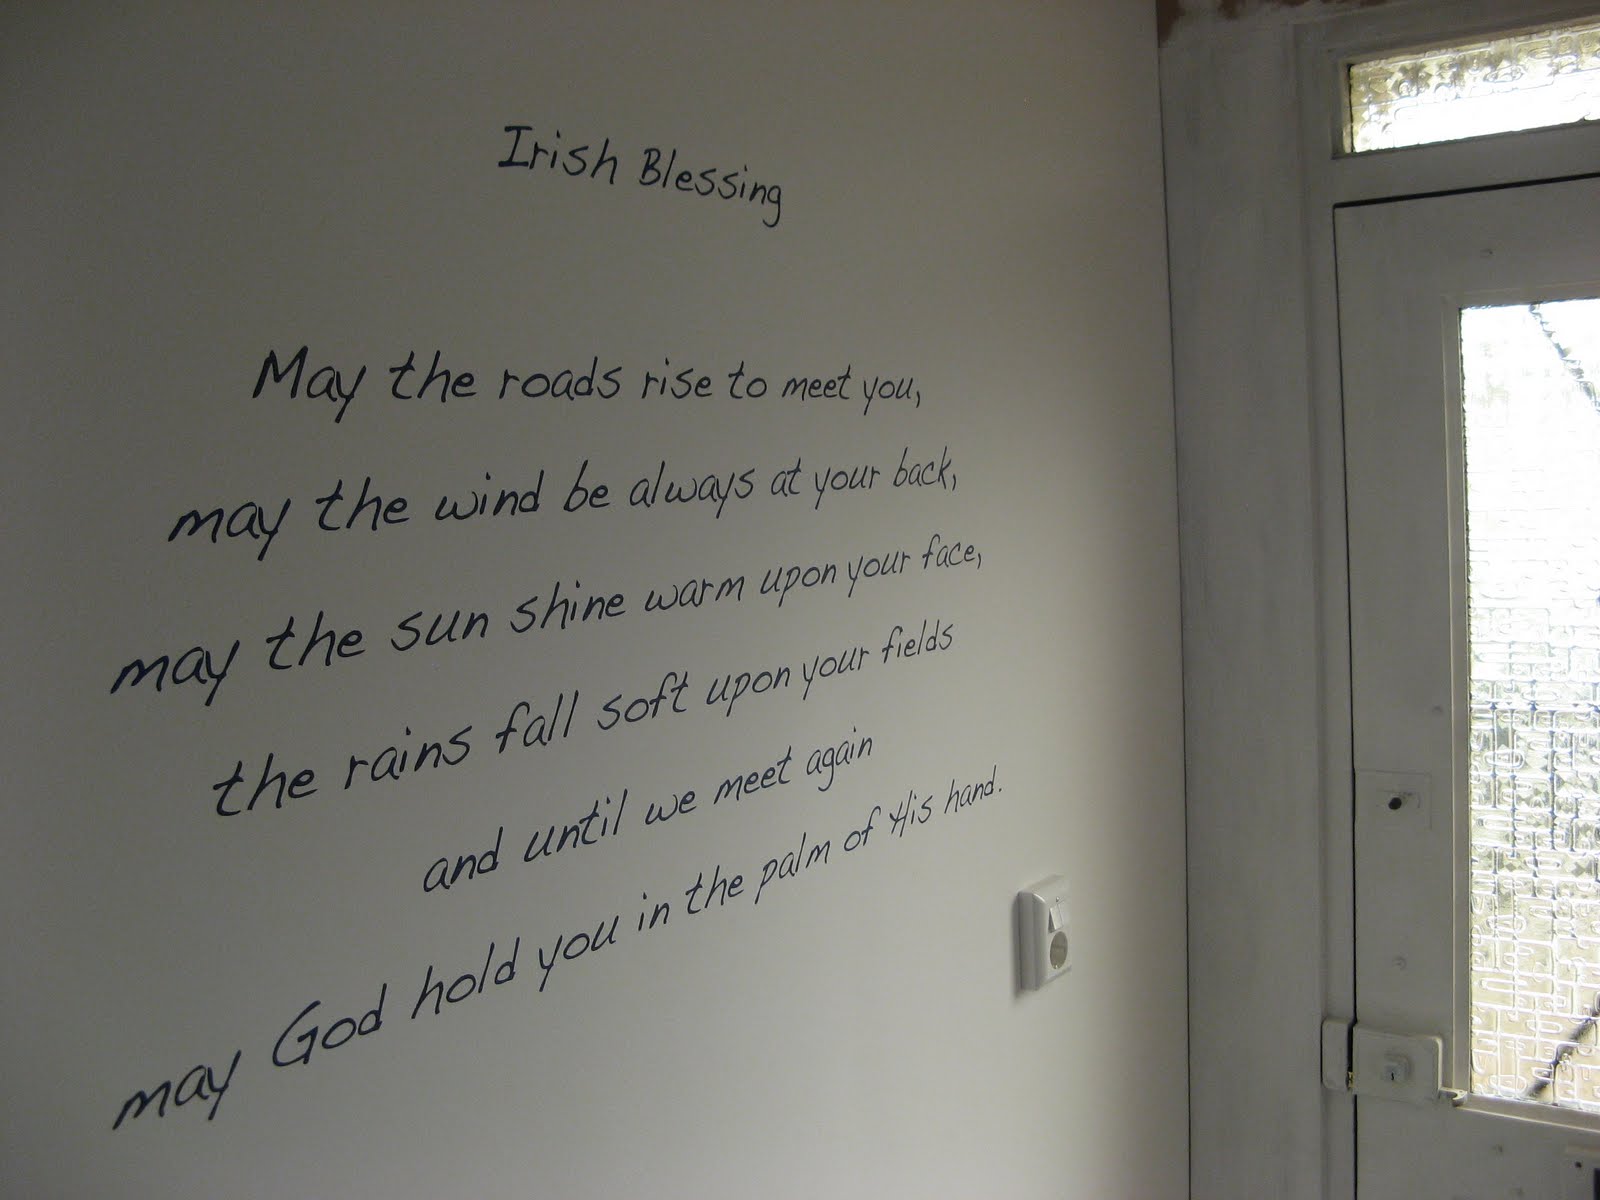 Irish Blessing
May the roads rise to meet you,
may the wind be always at your back,
may the sun shine warm upon your face,
the rains fall soft upon your fields
and until we meet again
may God hold you in the palm of His hand.